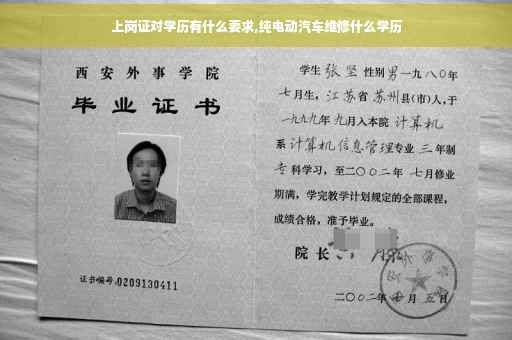 上岗证对学历有什么要求,纯电动汽车维修什么学历
西安外事学院
毕业证书
证书编号:0209130411
学生 张坚 性别男一九八〇年
七月生, 江苏省 苏州县(市)人,于
一九九九年 九月入本院 计算机
系 计算机信息管理专业 三 年制
专 科学习, 至二〇〇二年 七月修业
期满, 学完教学计划规定的全部课程,
成绩合格, 准予毕业。
院 长
二〇〇二年 月 五日